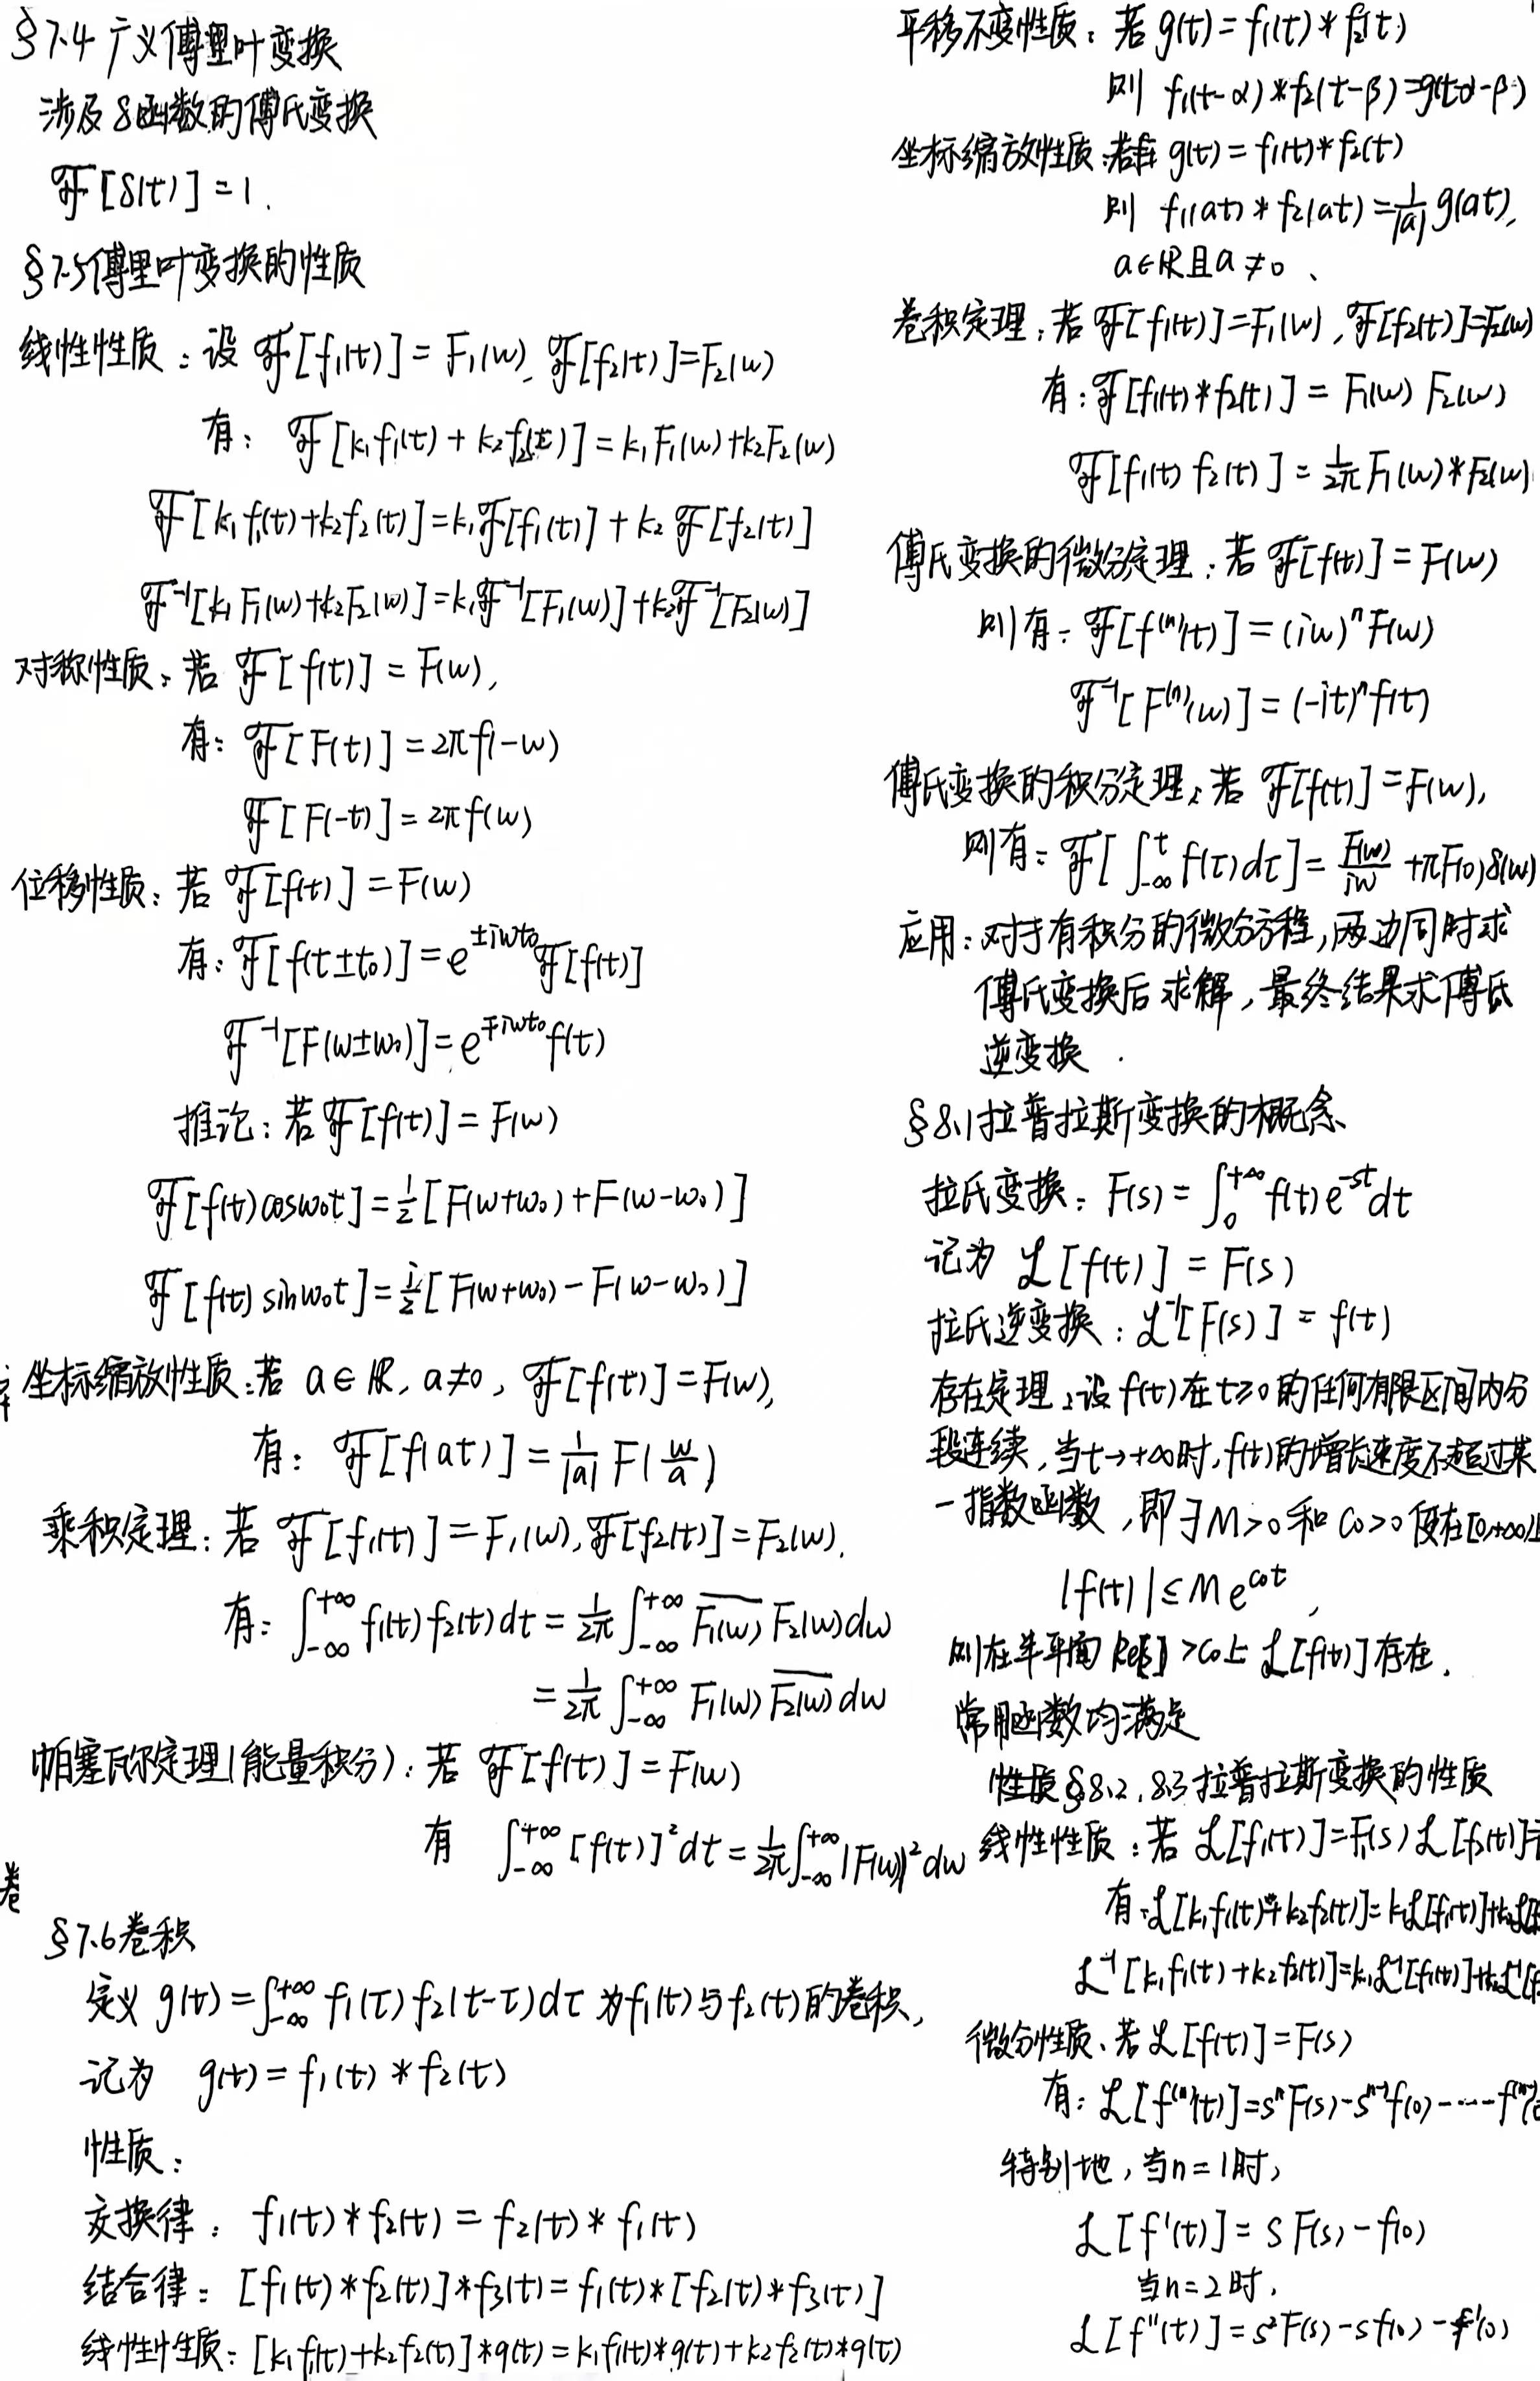 §7.4 广义傅里叶变换
涉及δ函数的傅氏变换
ℱ[δ(t)]=1.
§7.5傅里叶变换的性质
线性性质：设 ℱ[f₁(t)]=F₁(w), ℱ[f₂(t)]=F₂(w)
有： ℱ[k₁f₁(t)+k₂f₂(t)]=k₁F₁(w)+k₂F₂(w)
ℱ[k₁f₁(t)+k₂f₂(t)]=k₁ℱ[f₁(t)]+k₂ℱ[f₂(t)]
ℱ⁻¹[k₁F₁(w)+k₂F₂(w)]=k₁ℱ⁻¹[F₁(w)]+k₂ℱ⁻¹[F₂(w)]
对称性质：若 ℱ[f(t)]=F(w),
有： ℱ[F(t)]=2πf(-w)
ℱ[F(-t)]=2πf(w)
位移性质：若 ℱ[f(t)]=F(w)
有：ℱ[f(t±t₀)]=e^{±iwt₀}ℱ[f(t)]
ℱ⁻¹[F(w±w₀)]=e^{∓iwt₀}f(t)
推论：若ℱ[f(t)]=F(w)
ℱ[f(t)cosw₀t]=½[F(w+w₀)+F(w-w₀)]
ℱ[f(t)sinw₀t]=i/2[F(w+w₀)-F(w-w₀)]
坐标缩放性质：若 a∈ℝ, a≠0, ℱ[f(t)]=F(w),
有： ℱ[f(at)]=1/|a| F(w/a)
乘积定理：若 ℱ[f₁(t)]=F₁(w),ℱ[f₂(t)]=F₂(w).
有：∫_{-∞}^{+∞} f₁(t)f₂(t)dt=1/2π ∫_{-∞}^{+∞} \overline{F₁(w)} F₂(w)dw
=1/2π ∫_{-∞}^{+∞} F₁(w) \overline{F₂(w)} dw
帕塞瓦尔定理(能量积分)：若 ℱ[f(t)]=F(w)
有 ∫_{-∞}^{+∞} [f(t)]²dt=1/2π ∫_{-∞}^{+∞} |F(w)|²dw
卷
§7.6卷积
定义 g(t)=∫_{-∞}^{+∞} f₁(τ)f₂(t-τ)dτ 为f₁(t)与f₂(t)的卷积,
记为 g(t)=f₁(t)*f₂(t)
性质：
交换律： f₁(t)*f₂(t)=f₂(t)*f₁(t)
结合律： [f₁(t)*f₂(t)]*f₃(t)=f₁(t)*[f₂(t)*f₃(t)]
线性性质：[k₁f₁(t)+k₂f₂(t)]*g(t)=k₁f₁(t)*g(t)+k₂f₂(t)*g(t)
平移不变性质：若 g(t)=f₁(t)*f₂(t)
则 f₁(t-α)*f₂(t-β)=g(t-α-β)
坐标缩放性质：若 g(t)=f₁(t)*f₂(t)
则 f₁(at)*f₂(at)=1/|a| g(at),
a∈ℝ且a≠0、
卷积定理：若 ℱ[f₁(t)]=F₁(w),ℱ[f₂(t)]=F₂(w)
有：ℱ[f₁(t)*f₂(t)]=F₁(w)F₂(w)
ℱ[f₁(t)f₂(t)]=1/2π F₁(w)*F₂(w)
傅氏变换的微分定理：若 ℱ[f(t)]=F(w)
则有：ℱ[f⁽ⁿ⁾(t)]=(iw)ⁿF(w)
ℱ⁻¹[F⁽ⁿ⁾(w)]=(-it)ⁿf(t)
傅氏变换的积分定理：若 ℱ[f(t)]=F(w),
则有：ℱ[∫_{-∞}^{t} f(τ)dτ]=F(w)/iw +πF(0)δ(w)
应用：对于有积分的微分方程,两边同时求
傅氏变换后求解,最终结果求傅氏
逆变换.
§8.1拉普拉斯变换的概念
拉氏变换：F(s)=∫_{0}^{+∞} f(t)e^{-st}dt
记为 ℒ[f(t)]=F(s)
拉氏逆变换：ℒ⁻¹[F(s)]=f(t)
存在定理：设f(t)在t≥0的任何有限区间内分
段连续,当t→+∞时,f(t)的增长速度不超过某
一指数函数,即∃M>0和C₀>0使在[0,+∞)上
|f(t)|≤Me^{c₀t},
则在半平面Re[s]>C₀上ℒ[f(t)]存在.
常用函数均满足
性质§8.2,8.3拉普拉斯变换的性质
线性性质：若ℒ[f₁(t)]=F₁(s) ℒ[f₂(t)]=
有：ℒ[k₁f₁(t)+k₂f₂(t)]=k₁ℒ[f₁(t)]+k₂ℒ
ℒ⁻¹[k₁f₁(t)+k₂f₂(t)]=k₁ℒ⁻¹[f₁(t)]+k₂ℒ⁻¹[f
微分性质、若ℒ[f(t)]=F(s)
有：ℒ[f⁽ⁿ⁾(t)]=sⁿF(s)-sⁿ⁻¹f(0)-……-f⁽ⁿ⁻¹⁾(0
特别地,当n=1时,
ℒ[f'(t)]=sF(s)-f(0)
当n=2时,
ℒ[f''(t)]=s²F(s)-sf(0)-f'(0)